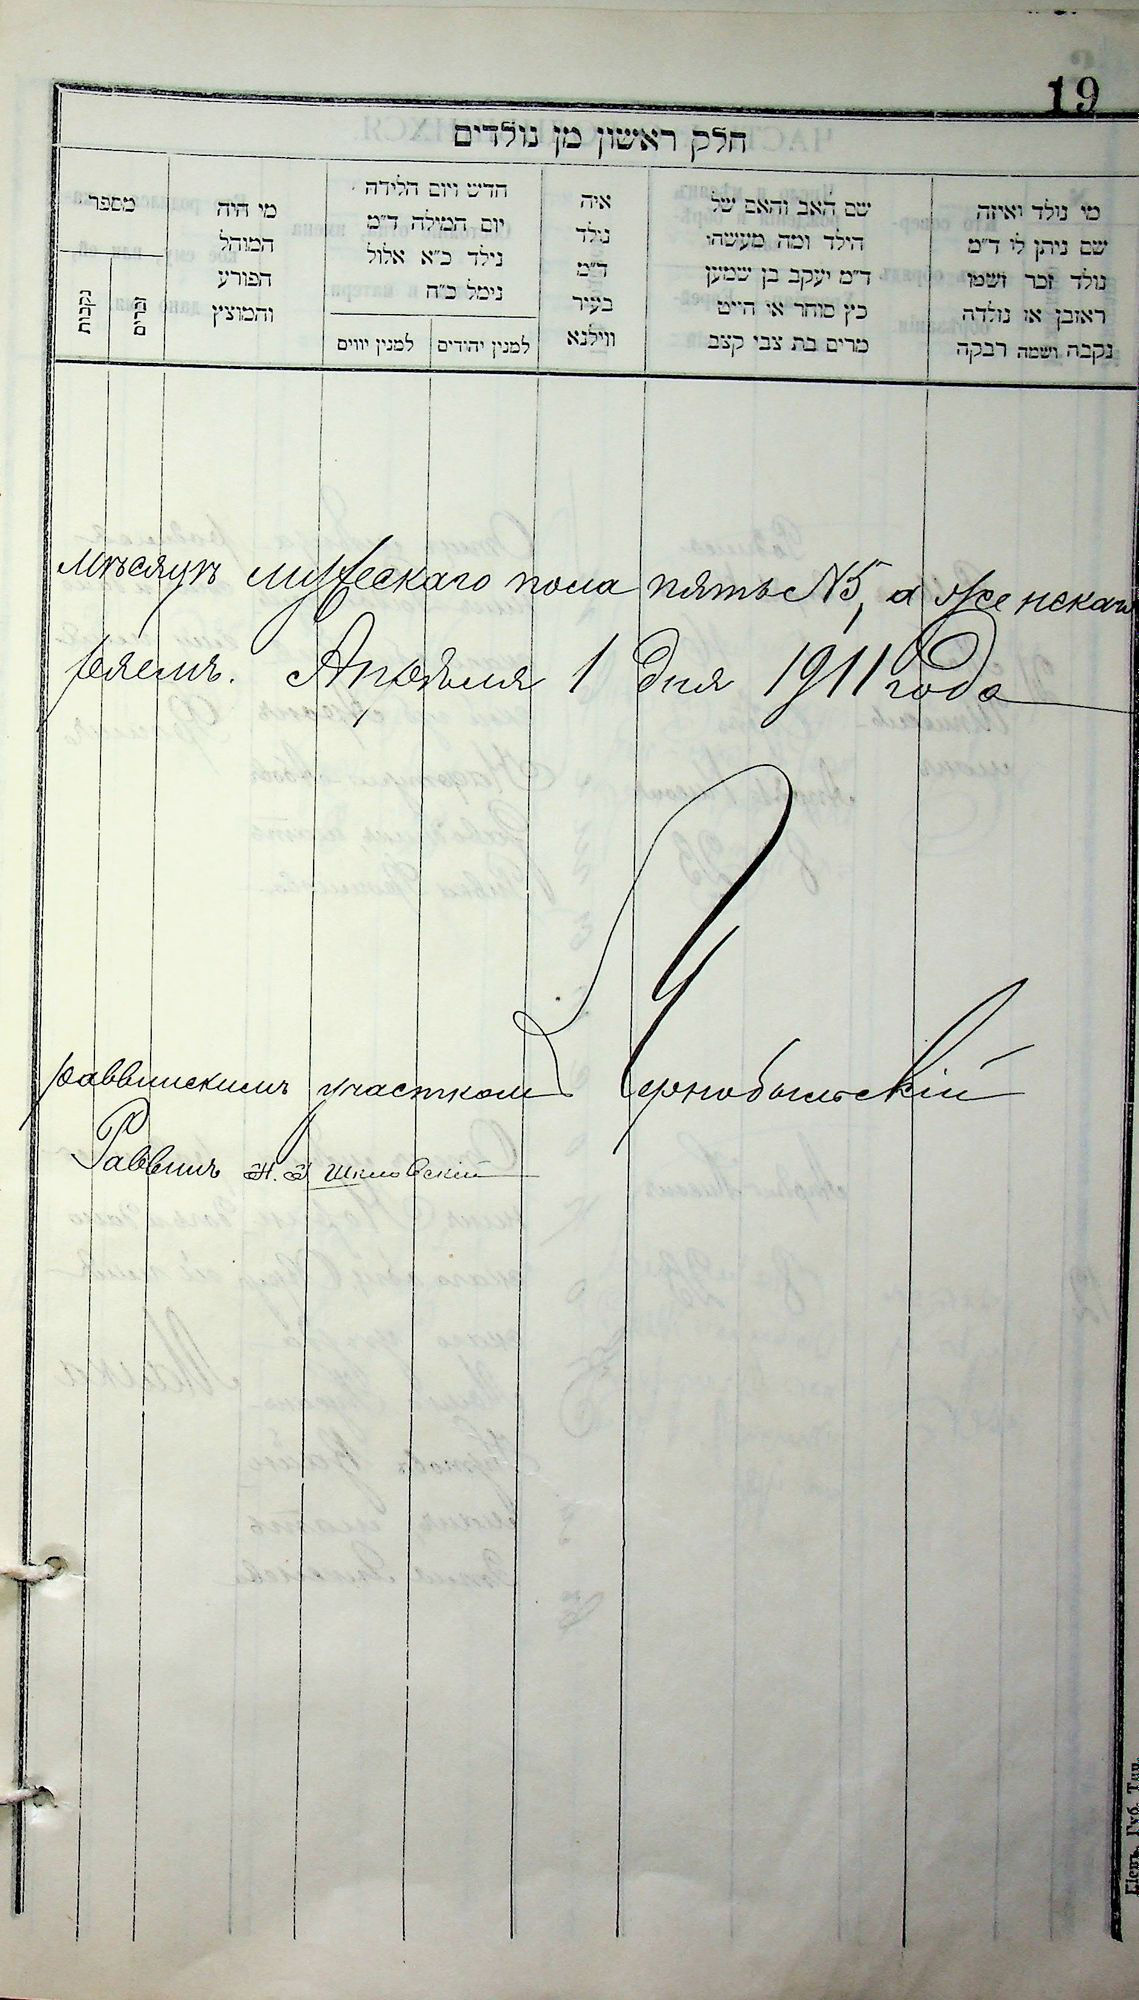 19
חלק ראשון מן נולדים
מי נולד ואיזה
שם ניתן לו ד״מ
נולד זכר ושמו
ראובן או נולדה
נקבה ושמה רבקה
שם האב והאם של
הילד ומה מעשהו
ד״מ יעקב בן שמעון
כץ סוחר או חייט
מרים בת צבי קצב
איה
נולד
ד״מ
בעיר
ווילנא
חדש ויום הלידה
יום המילה ד״מ
נילד כ״א אלול
נימל כ״ח
למנין יהודים
למנין יווים
מי היה
המוהל
הפורע
והמוצץ
מספר
זכרים
נקבות
мѣсяцѣ мужескаго пола пять №5, а женскаго
Апрѣля 1 дня 1911 года
раввинскимъ участкомъ Чернобыльскій
Раввинъ Шкловскій
Кіевъ. Губ. Тип.